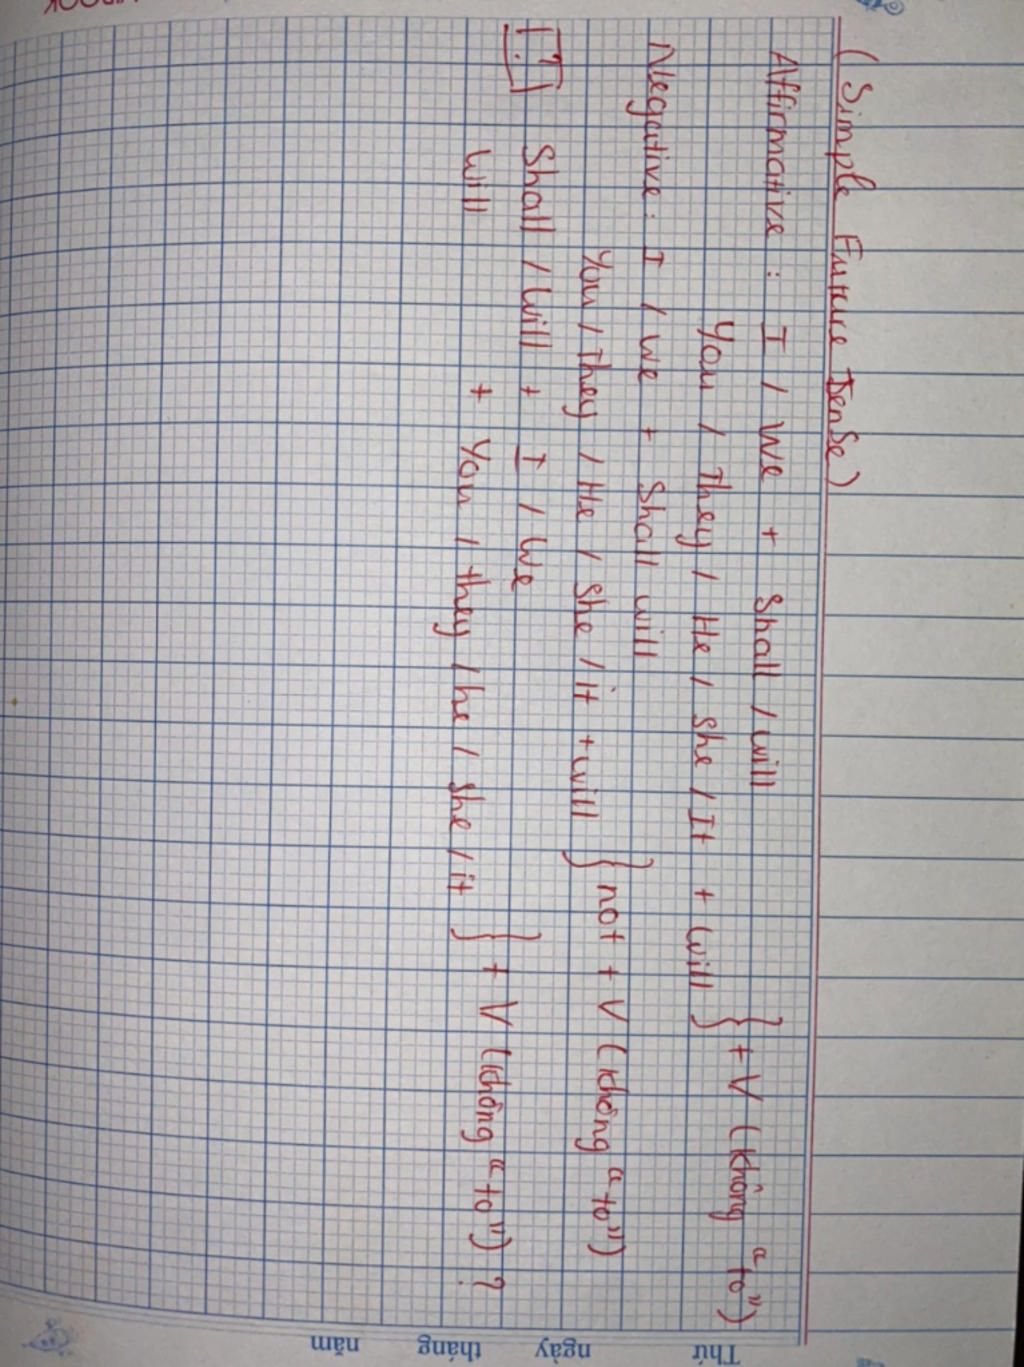 (Simple Future Tense)
Affirmative : I / We + Shall / will
You / They / He / She / It + will } + V (không "to")
Negative : I / We + Shall will
You / They / He / She / it + will } not + V (không "to")
[?] Shall / will + I / We
Will + You / they / he / she / it } + V (không "to") ?
Thứ ngày tháng năm